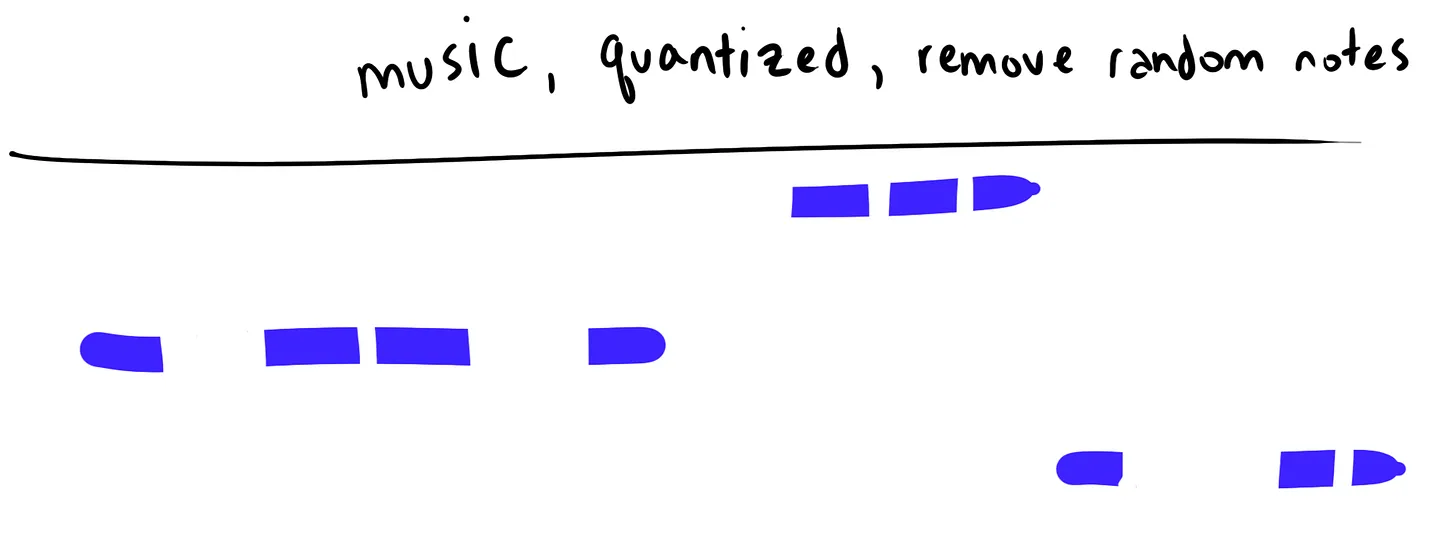 music, quantized, remove random notes